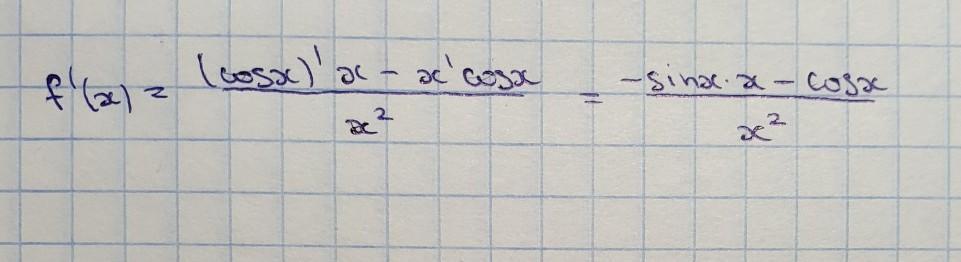 f'(x) = \frac{(cosx)' x - x' cosx}{x^2} = \frac{-sinx \cdot x - cosx}{x^2}